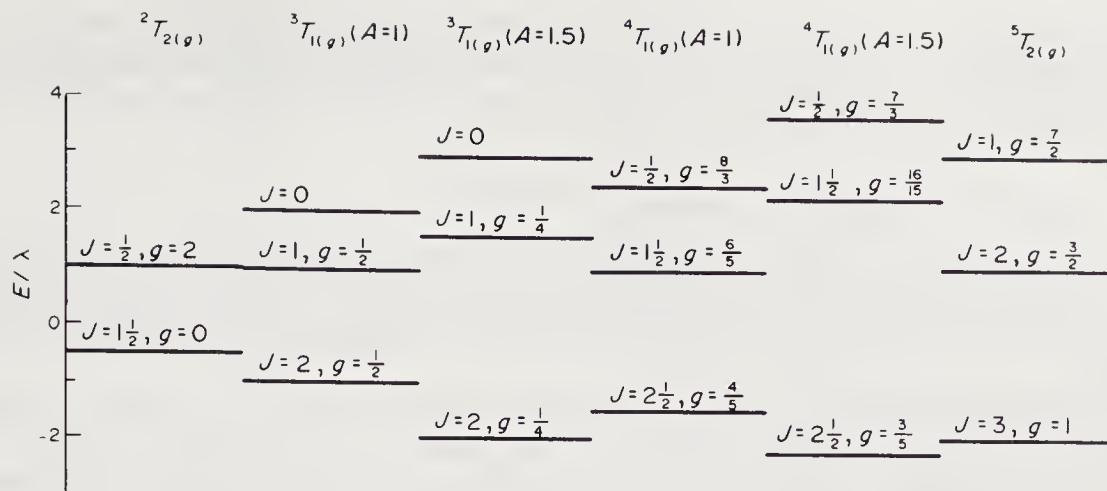 ²T₂₍g₎ ³T₁₍g₎(A=1) ³T₁₍g₎(A=1.5) ⁴T₁₍g₎(A=1) ⁴T₁₍g₎(A=1.5) ⁵T₂₍g₎
4
2
0
-2
E/λ
J=½, g=2
J=1½, g=0
J=0
J=1, g=½
J=2, g=½
J=0
J=1, g=¼
J=2, g=¼
J=½, g=8/3
J=1½, g=6/5
J=2½, g=4/5
J=½, g=7/3
J=1½, g=16/15
J=2½, g=3/5
J=1, g=7/2
J=2, g=3/2
J=3, g=1